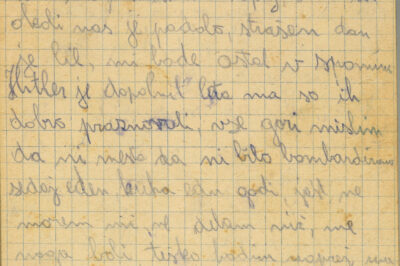 okoli nas je padalo, strašen dan
je bil, mi bode ostal v spominu
Hitler je dopolnil leta ma so ih
dobro praznovali, vse gori mislim
da ni mesta da ni bilo bombardirano
sedaj eden kuha edn godi, jest ne
morem nič, ne delam nič, me
noga boli težko hodim naprej